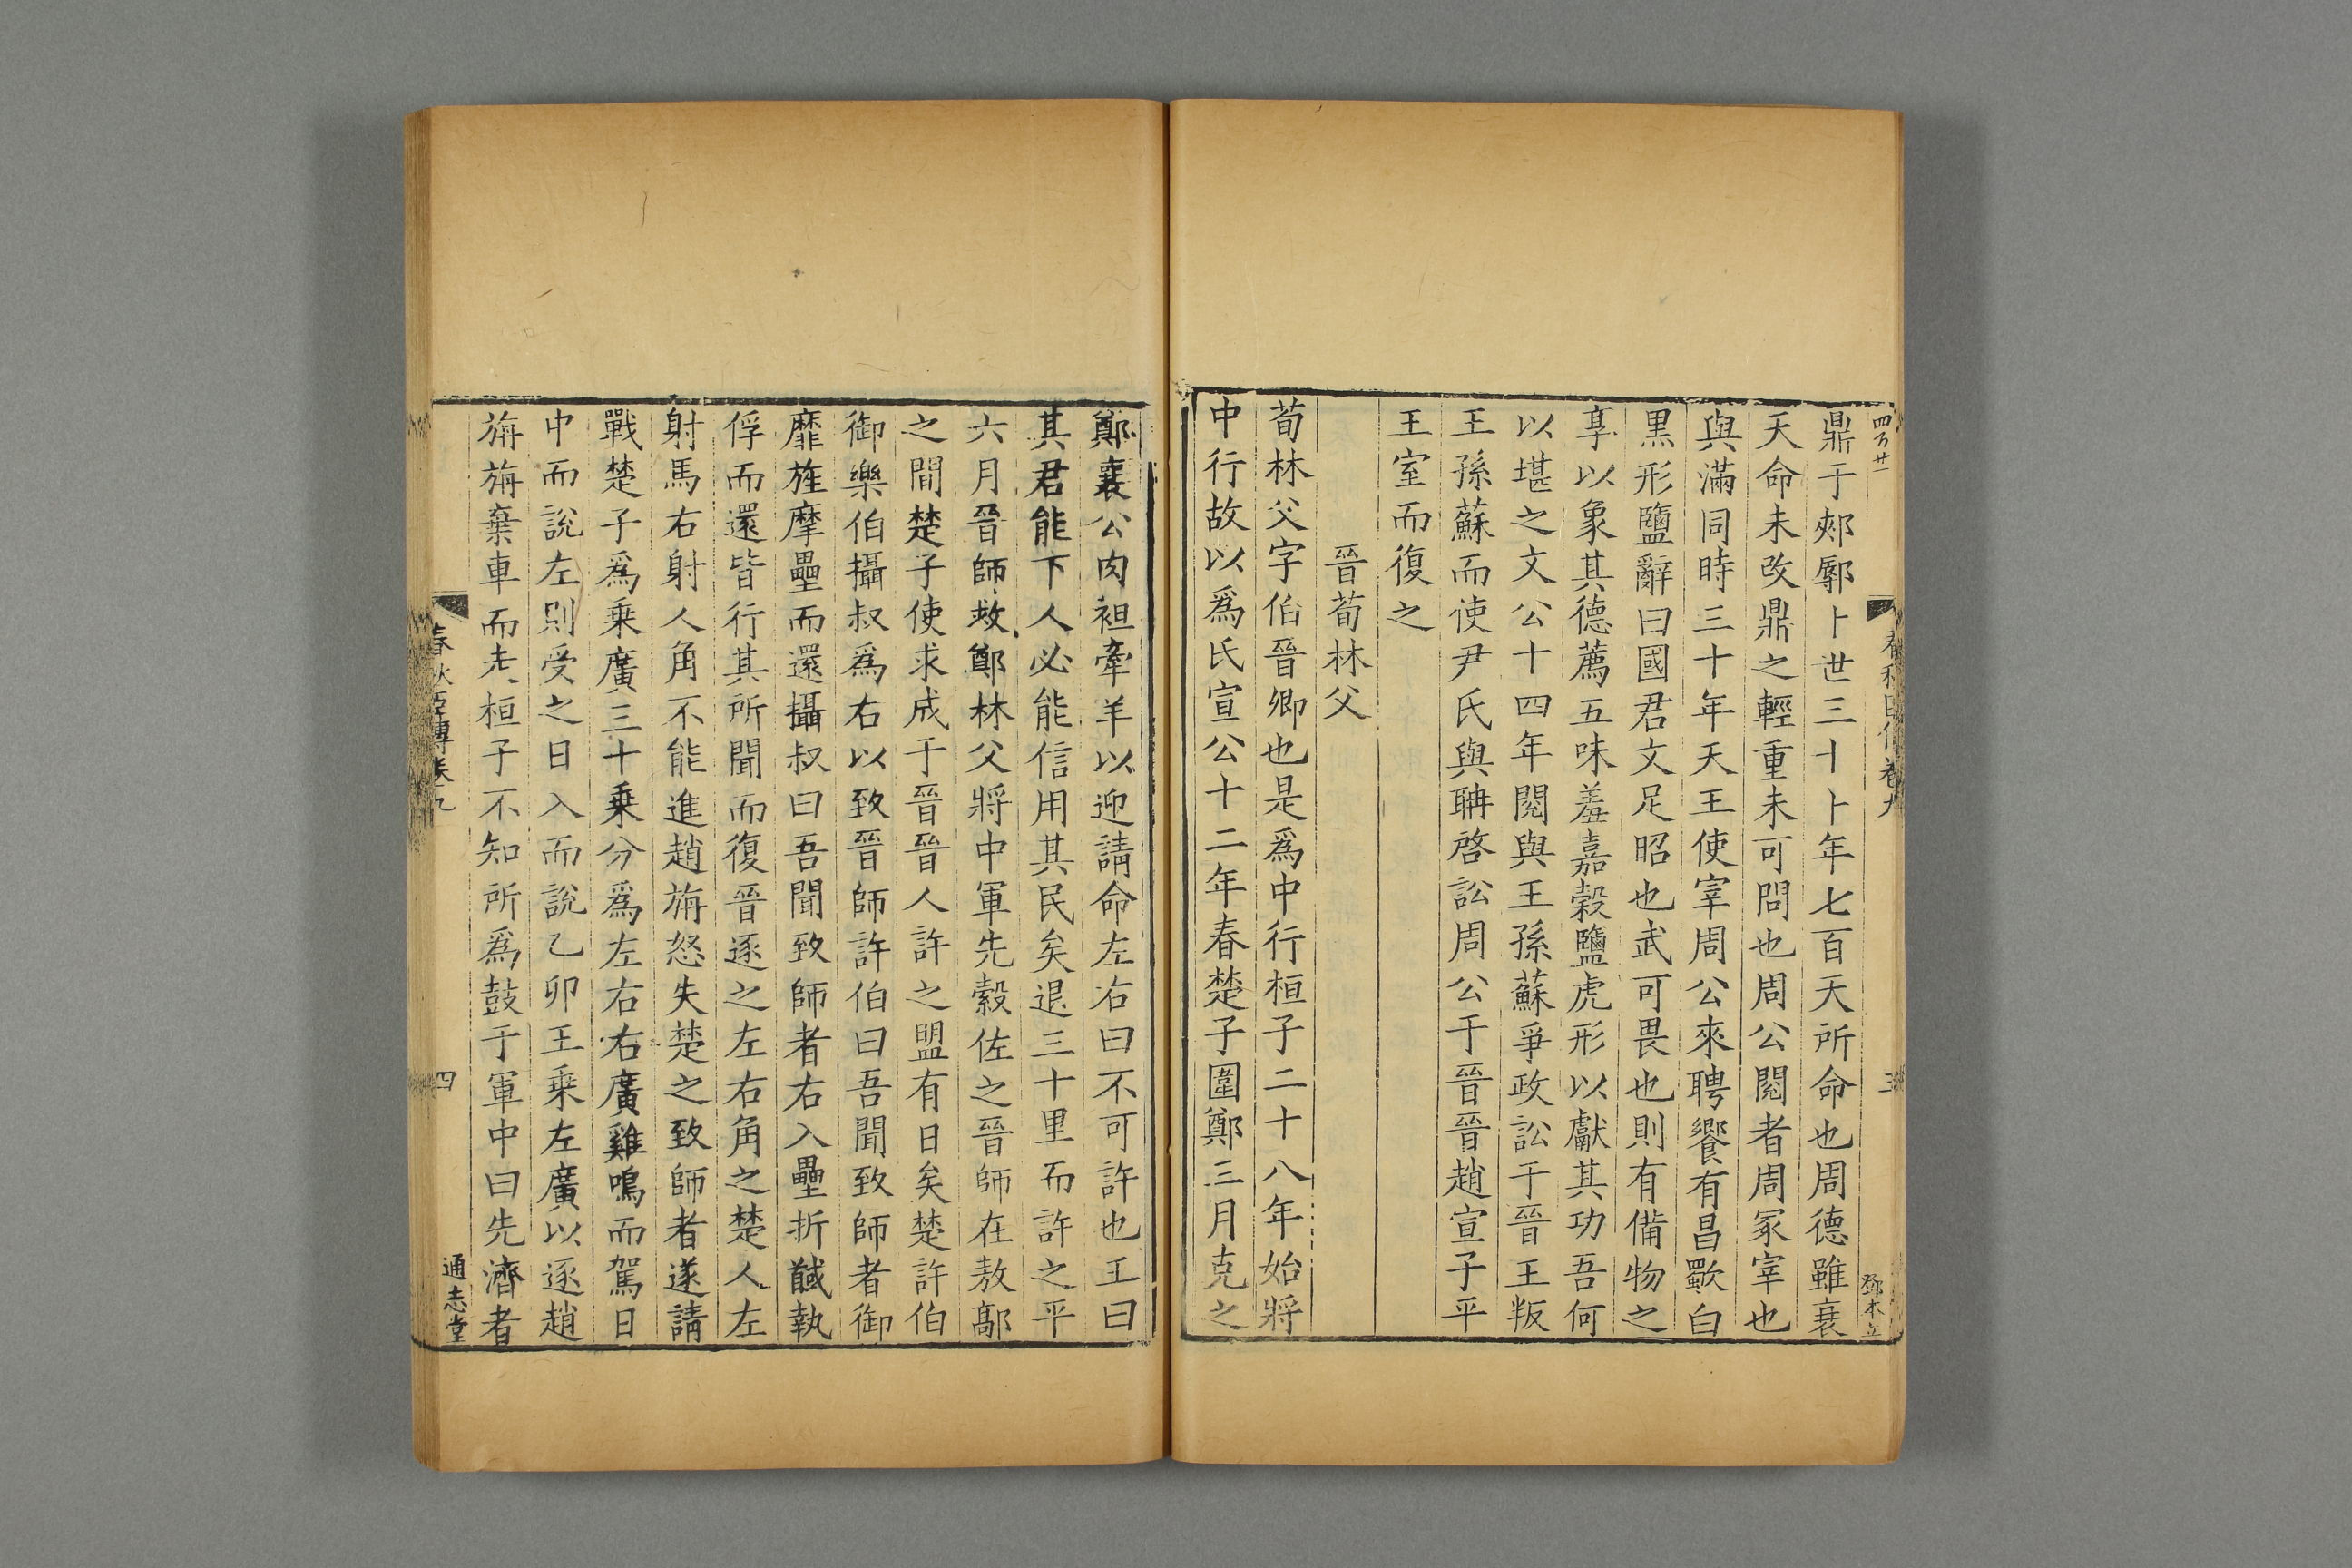 四百廿一
春秋臣傳卷九
三
鄧木立
鼎于郟鄏卜世三十卜年七百天所命也周德雖衰
天命未改鼎之輕重未可問也周公閱者周冢宰也
與滿同時三十年天王使宰周公來聘饗有昌歜白
黑形鹽辭曰國君文足昭也武可畏也則有備物之
享以象其德薦五味羞嘉穀鹽虎形以獻其功吾何
以堪之文公十四年閱與王孫蘇爭政訟于晉王叛
王孫蘇而使尹氏與聃啓訟周公于晉晉趙宣子平
王室而復之
晉荀林父
荀林父字伯晉卿也是爲中行桓子二十八年始將
中行故以爲氏宣公十二年春楚子圍鄭三月克之
鄭襄公肉袒牽羊以迎請命左右曰不可許也王曰
其君能下人必能信用其民矣退三十里而許之平
六月晉師救鄭林父將中軍先縠佐之晉師在敖鄗
之間楚子使求成于晉晉人許之盟有日矣楚許伯
御樂伯攝叔爲右以致晉師許伯曰吾聞致師者御
靡旌摩壘而還攝叔曰吾聞致師者右入壘折馘執
俘而還皆行其所聞而復晉逐之左右角之楚人左
射馬右射人角不能進趙旃怒失楚之致師者遂請
戰楚子爲乗廣三十乗分爲左右右廣雞鳴而駕日
中而說左則受之日入而說乙卯王乗左廣以逐趙
旃旃棄車而走桓子不知所爲鼓于軍中曰先濟者
春秋臣傳卷九
四
通志堂